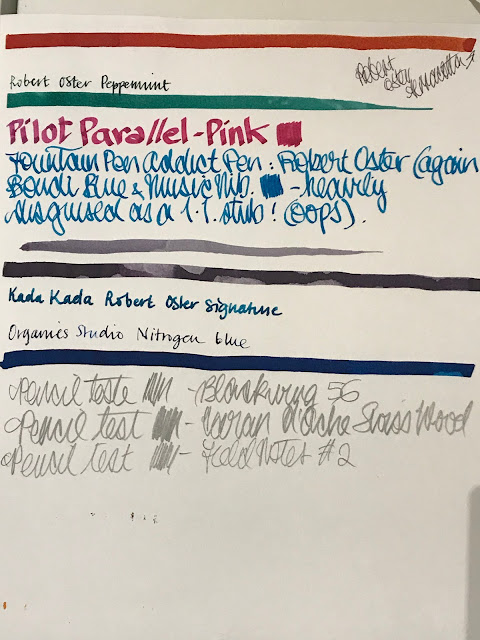 Robert Oster Peppermint
Robert
Oster
Pilot Parallel-Pink
Fountain Pen Addict Pen: Robert Oster (again
Bondi Blue & Music Nib. - heavily
disguised as a 1.1. stub! (oops).
Kada Kada Robert Oster Signature
Organics Studio Nitrogen blue
Pencil teste - Blackwing 56
Pencil test - Caran d'Ache Swiss Wood
Pencil test - Field Notes #2